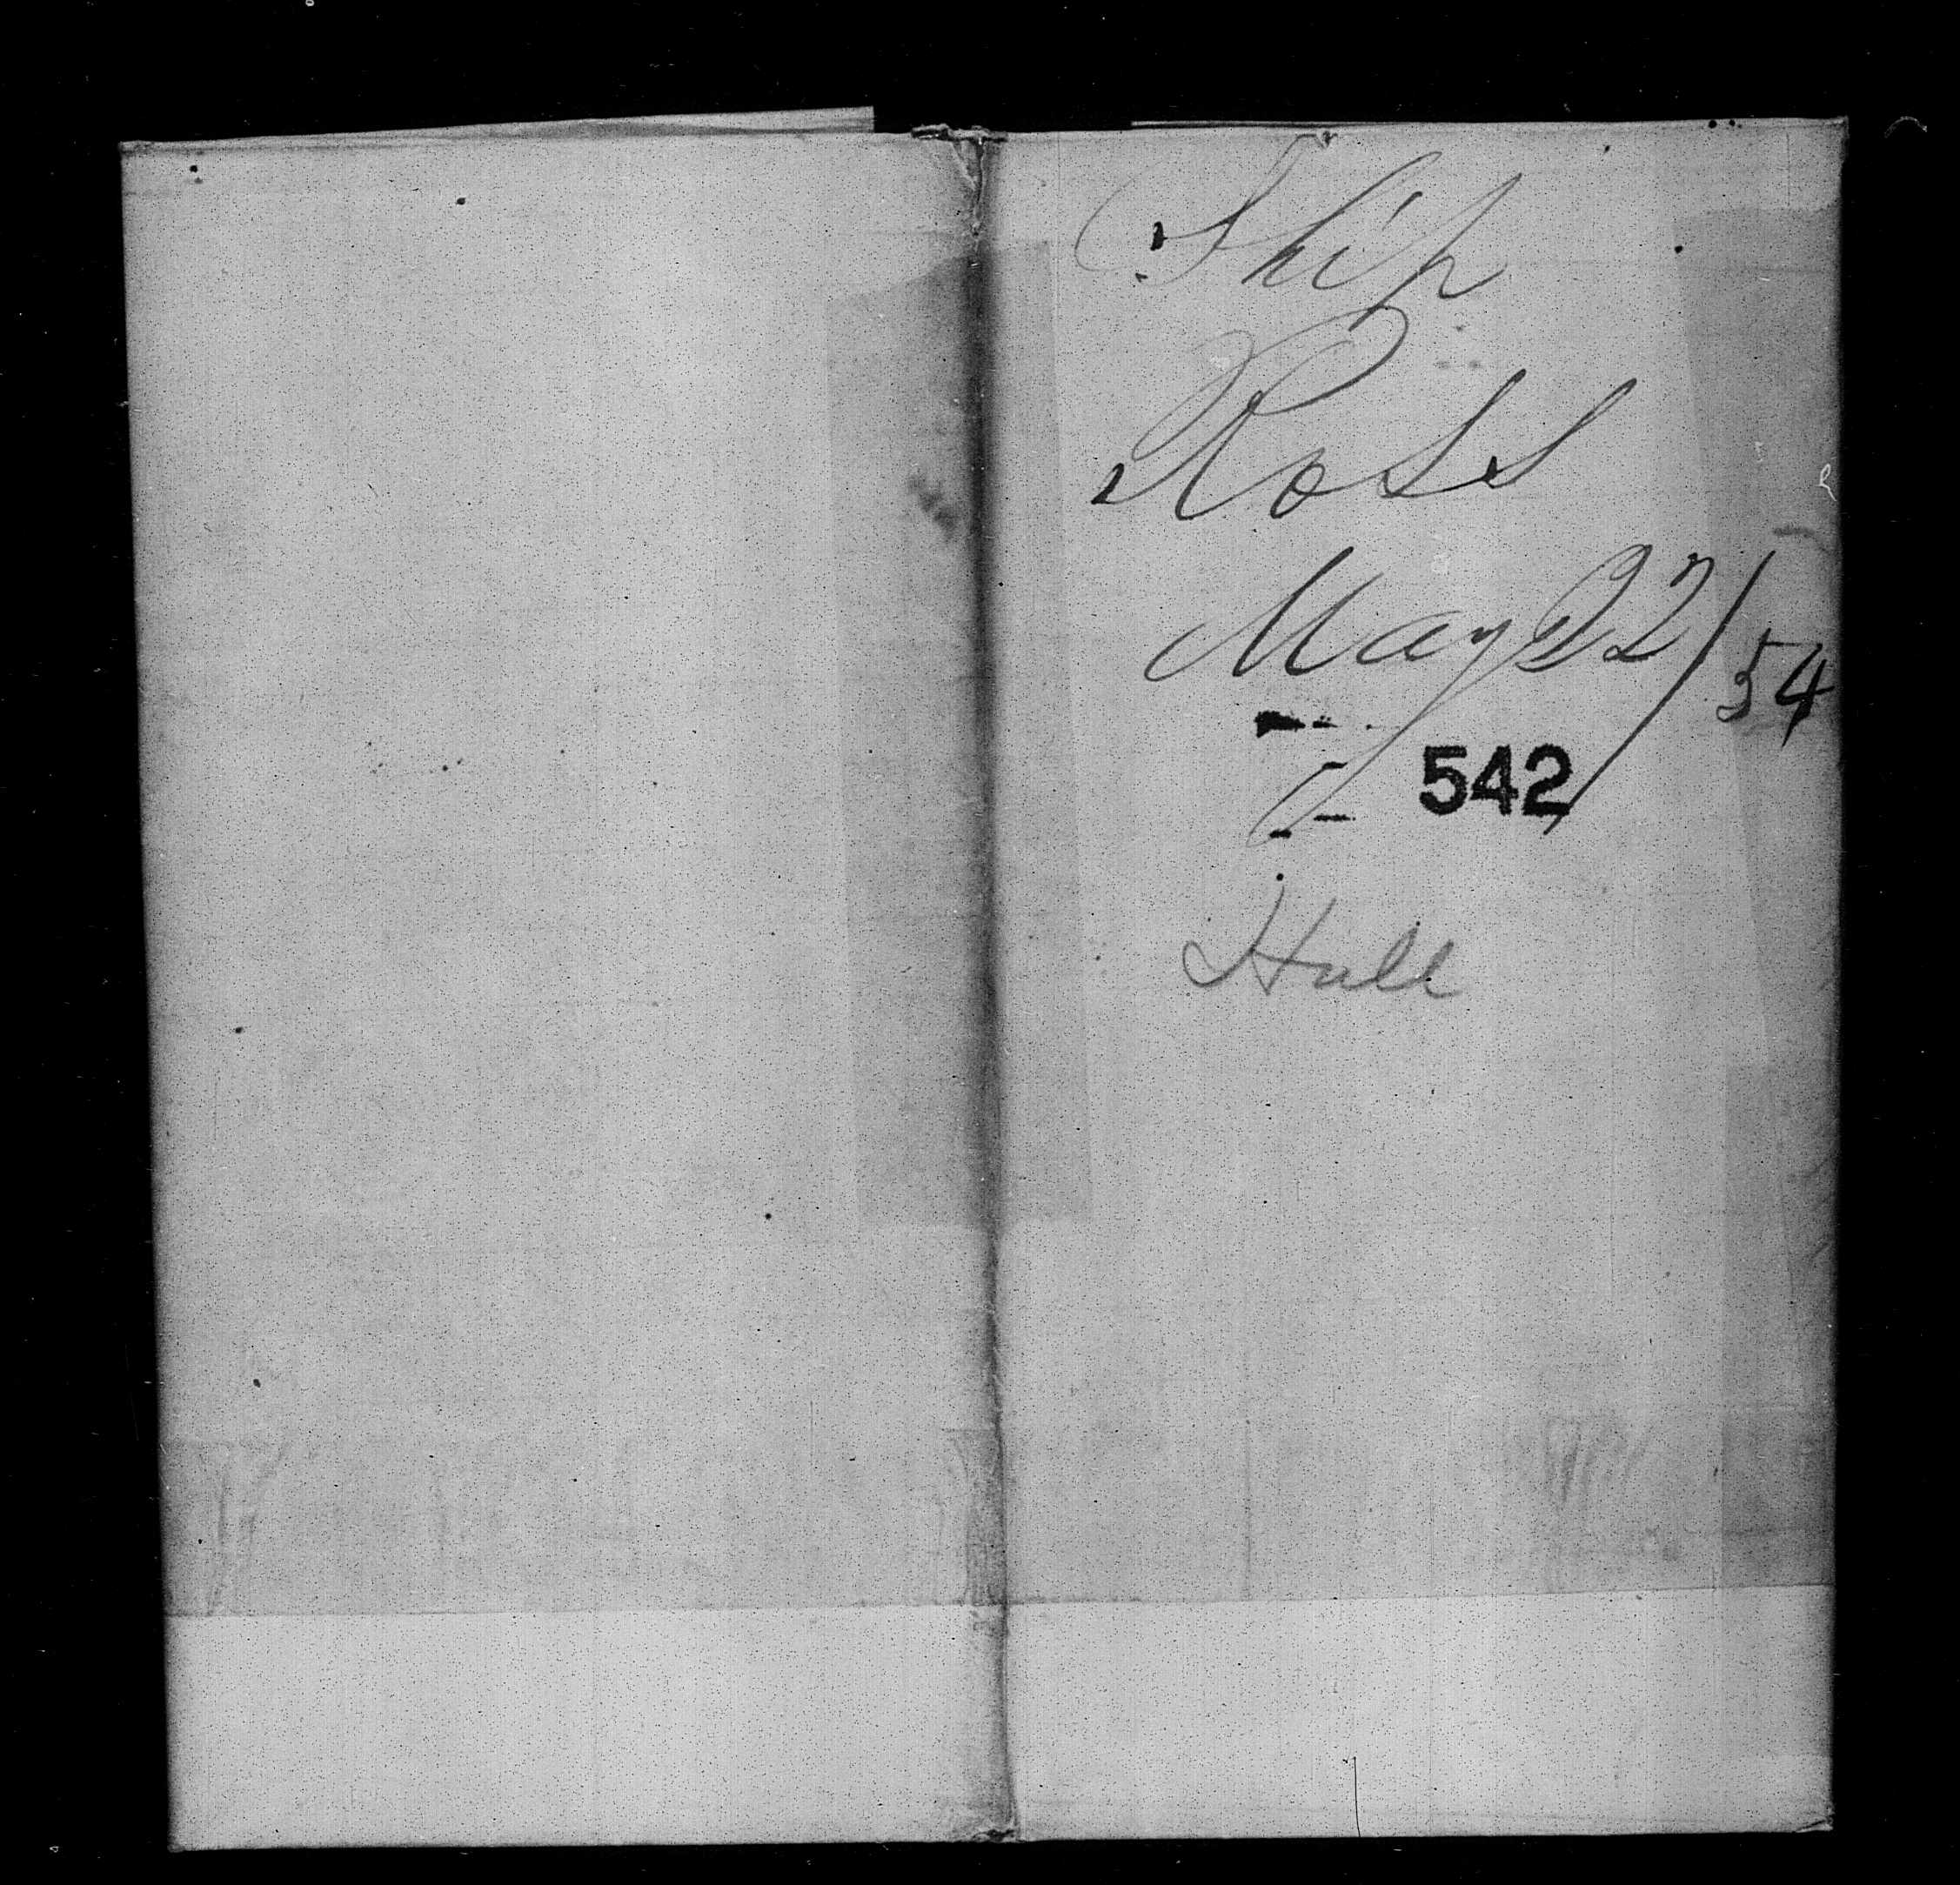 Ship
Ross
May 22/54
542
Hull